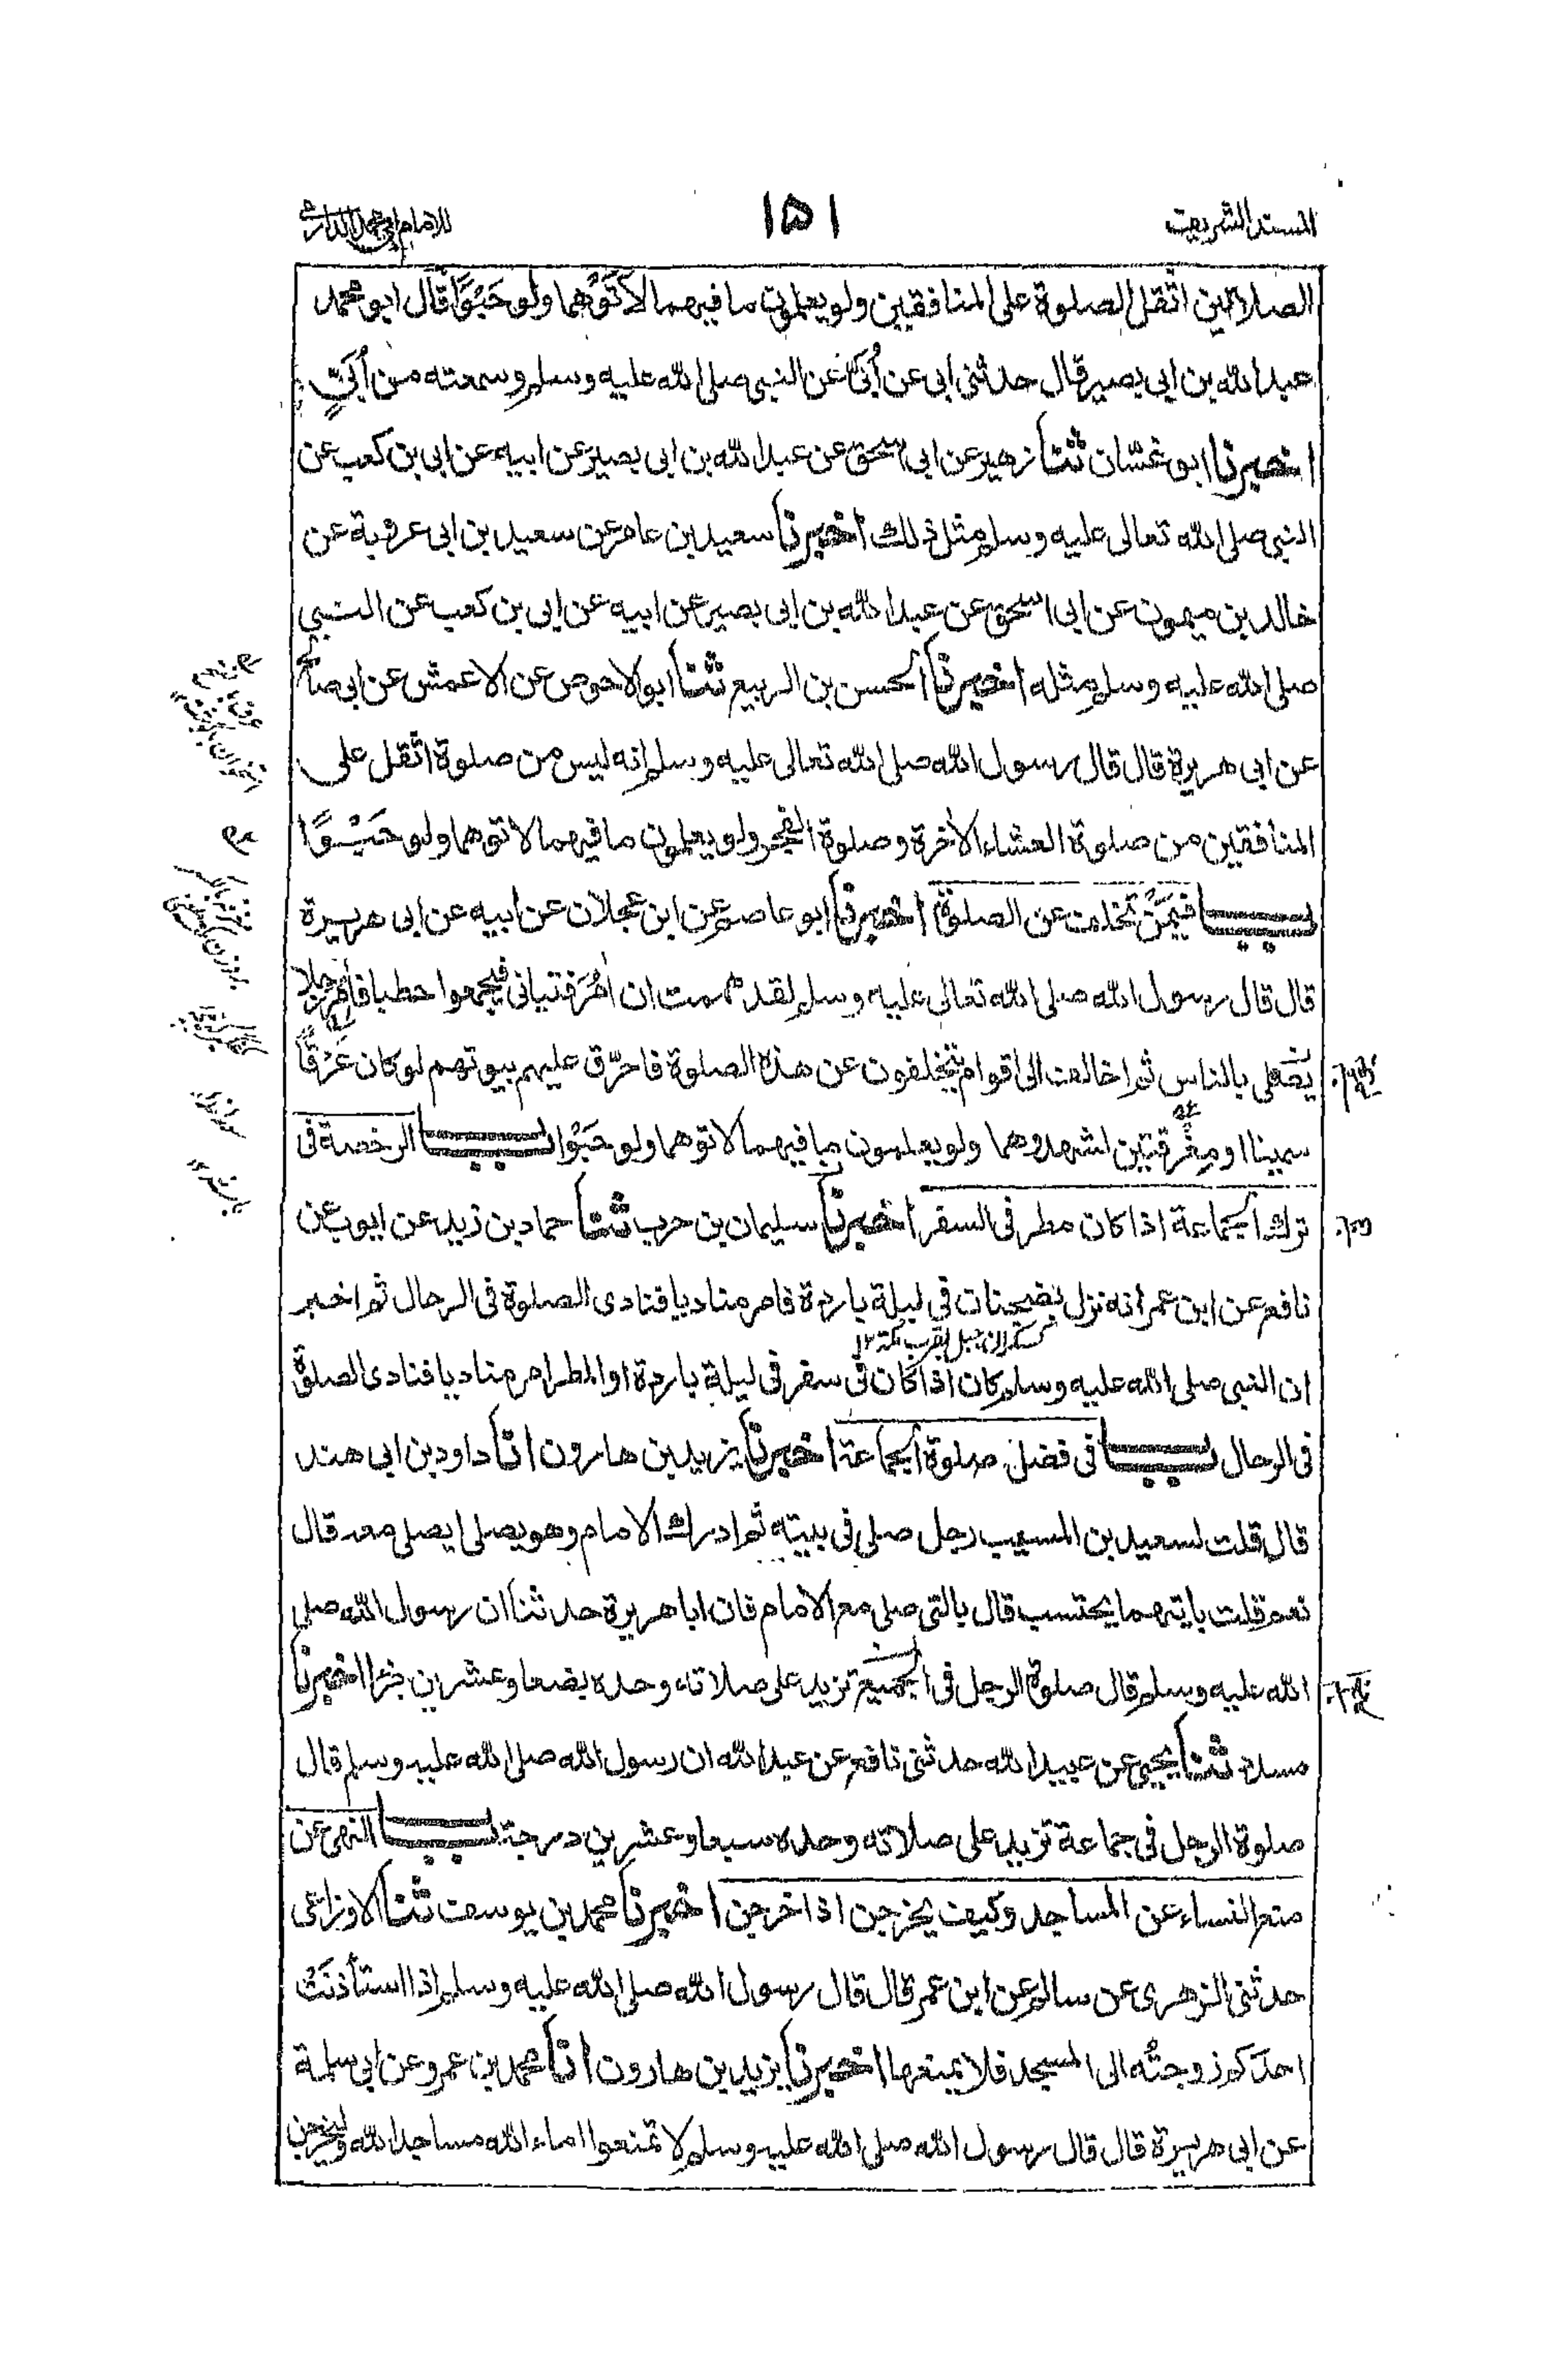 المسند الشريف ١٥١ للامام ابى محمد الدارمى
الصلاتين اثقل الصلوة على المنافقين ولو يعلمون ما فيهما لاتَوْهما ولو حَبْوًا قال ابو محمد
عبد الله بن ابى بصير قال حدثنى ابى عن أُبَىّ عن النبى صلى الله عليه وسلم وسمعته من أُبَىٍّ
اخبرنا ابو غسّان ثنا زهير عن ابى اسحق عن عبد الله بن ابى بصير عن ابيه عن ابى بن كعب عن
النبى صلى الله تعالى عليه وسلم مثل ذلك اخبرنا سعيد بن عامر عن سعيد بن ابى عروبة عن
خالد بن ميمون عن ابى اسحق عن عبد الله بن ابى بصير عن ابيه عن ابى بن كعب عن النبى
صلى الله عليه وسلم مثله اخبرنا الحسن بن الربيع ثنا ابو الاحوص عن الاعمش عن ابى صالح
عن ابى هريرة قال قال رسول الله صلى الله تعالى عليه وسلم انه ليس من صلوة اثقل على
المنافقين من صلوة العشاء الآخرة وصلوة الفجر ولو يعلمون ما فيهما لاتوهما ولو حَبْوًا
باب فيمَنْ تخلف عن الصلوة اخبرنا ابو عاصم عن ابن عجلان عن ابيه عن ابى هريرة
قال قال رسول الله صلى الله تعالى عليه وسلم لقد هممت ان آمُرَ فتيانى فيجمعوا حطبا فآمر رجلا
يصلى بالناس ثم اخالف الى اقوام يتخلفون عن هذه الصلوة فاحرّق عليهم بيوتهم لو كان عَرْقًا
سمينا او مِعْرقتين لشهدوهما ولو يعلمون ما فيهما لاتوهما ولو حَبْوا باب الرخصة فى
ترك الجماعة اذا كان مطر فى السفر اخبرنا سليمان بن حرب ثنا حماد بن زيد عن ايوب عن
نافع عن ابن عمر انه نزل بضجنان فى ليلة باردة فامر مناديا فنادى الصلوة فى الرحال ثم اخبر
كسكران جبل بقرب مكة ١٢
ان النبى صلى الله عليه وسلم كان اذا كان فى سفر فى ليلة باردة او المطر امر مناديا فنادى الصلوة
فى الرحال باب فى فضل صلوة الجماعة اخبرنا يزيد بن هارون انا داود بن ابى هند
قال قلت لسعيد بن المسيب رجل صلى فى بيته ثم ادرك الامام وهو يصلى ايصلى معه قال
نعم قلت بايتهما يحتسب قال بالتى صلى مع الامام فان ابا هريرة حدثنا ان رسول الله صلى
الله عليه وسلم قال صلوة الرجل فى الجميع تزيد على صلاته وحده بضعا وعشرين جزءا اخبرنا
مسدد ثنا يحيى عن عبيد الله حدثنى نافع عن عبد الله ان رسول الله صلى الله عليه وسلم قال
صلوة الرجل فى جماعة تزيد على صلاته وحده سبعا وعشرين درجة باب النهى عن
منع النساء عن المساجد وكيف يخرجن اذا خرجن اخبرنا محمد بن يوسف ثنا الاوزاعى
حدثنى الزهرى عن سالم عن ابن عمر قال قال رسول الله صلى الله عليه وسلم اذا استأذنَتْ
احدَكم زوجتُه الى المسجد فلا يمنعها اخبرنا يزيد بن هارون انا محمد بن عمرو عن ابى سلمة
عن ابى هريرة قال قال رسول الله صلى الله عليه وسلم لا تمنعوا اماء الله مساجد الله وليخرجن